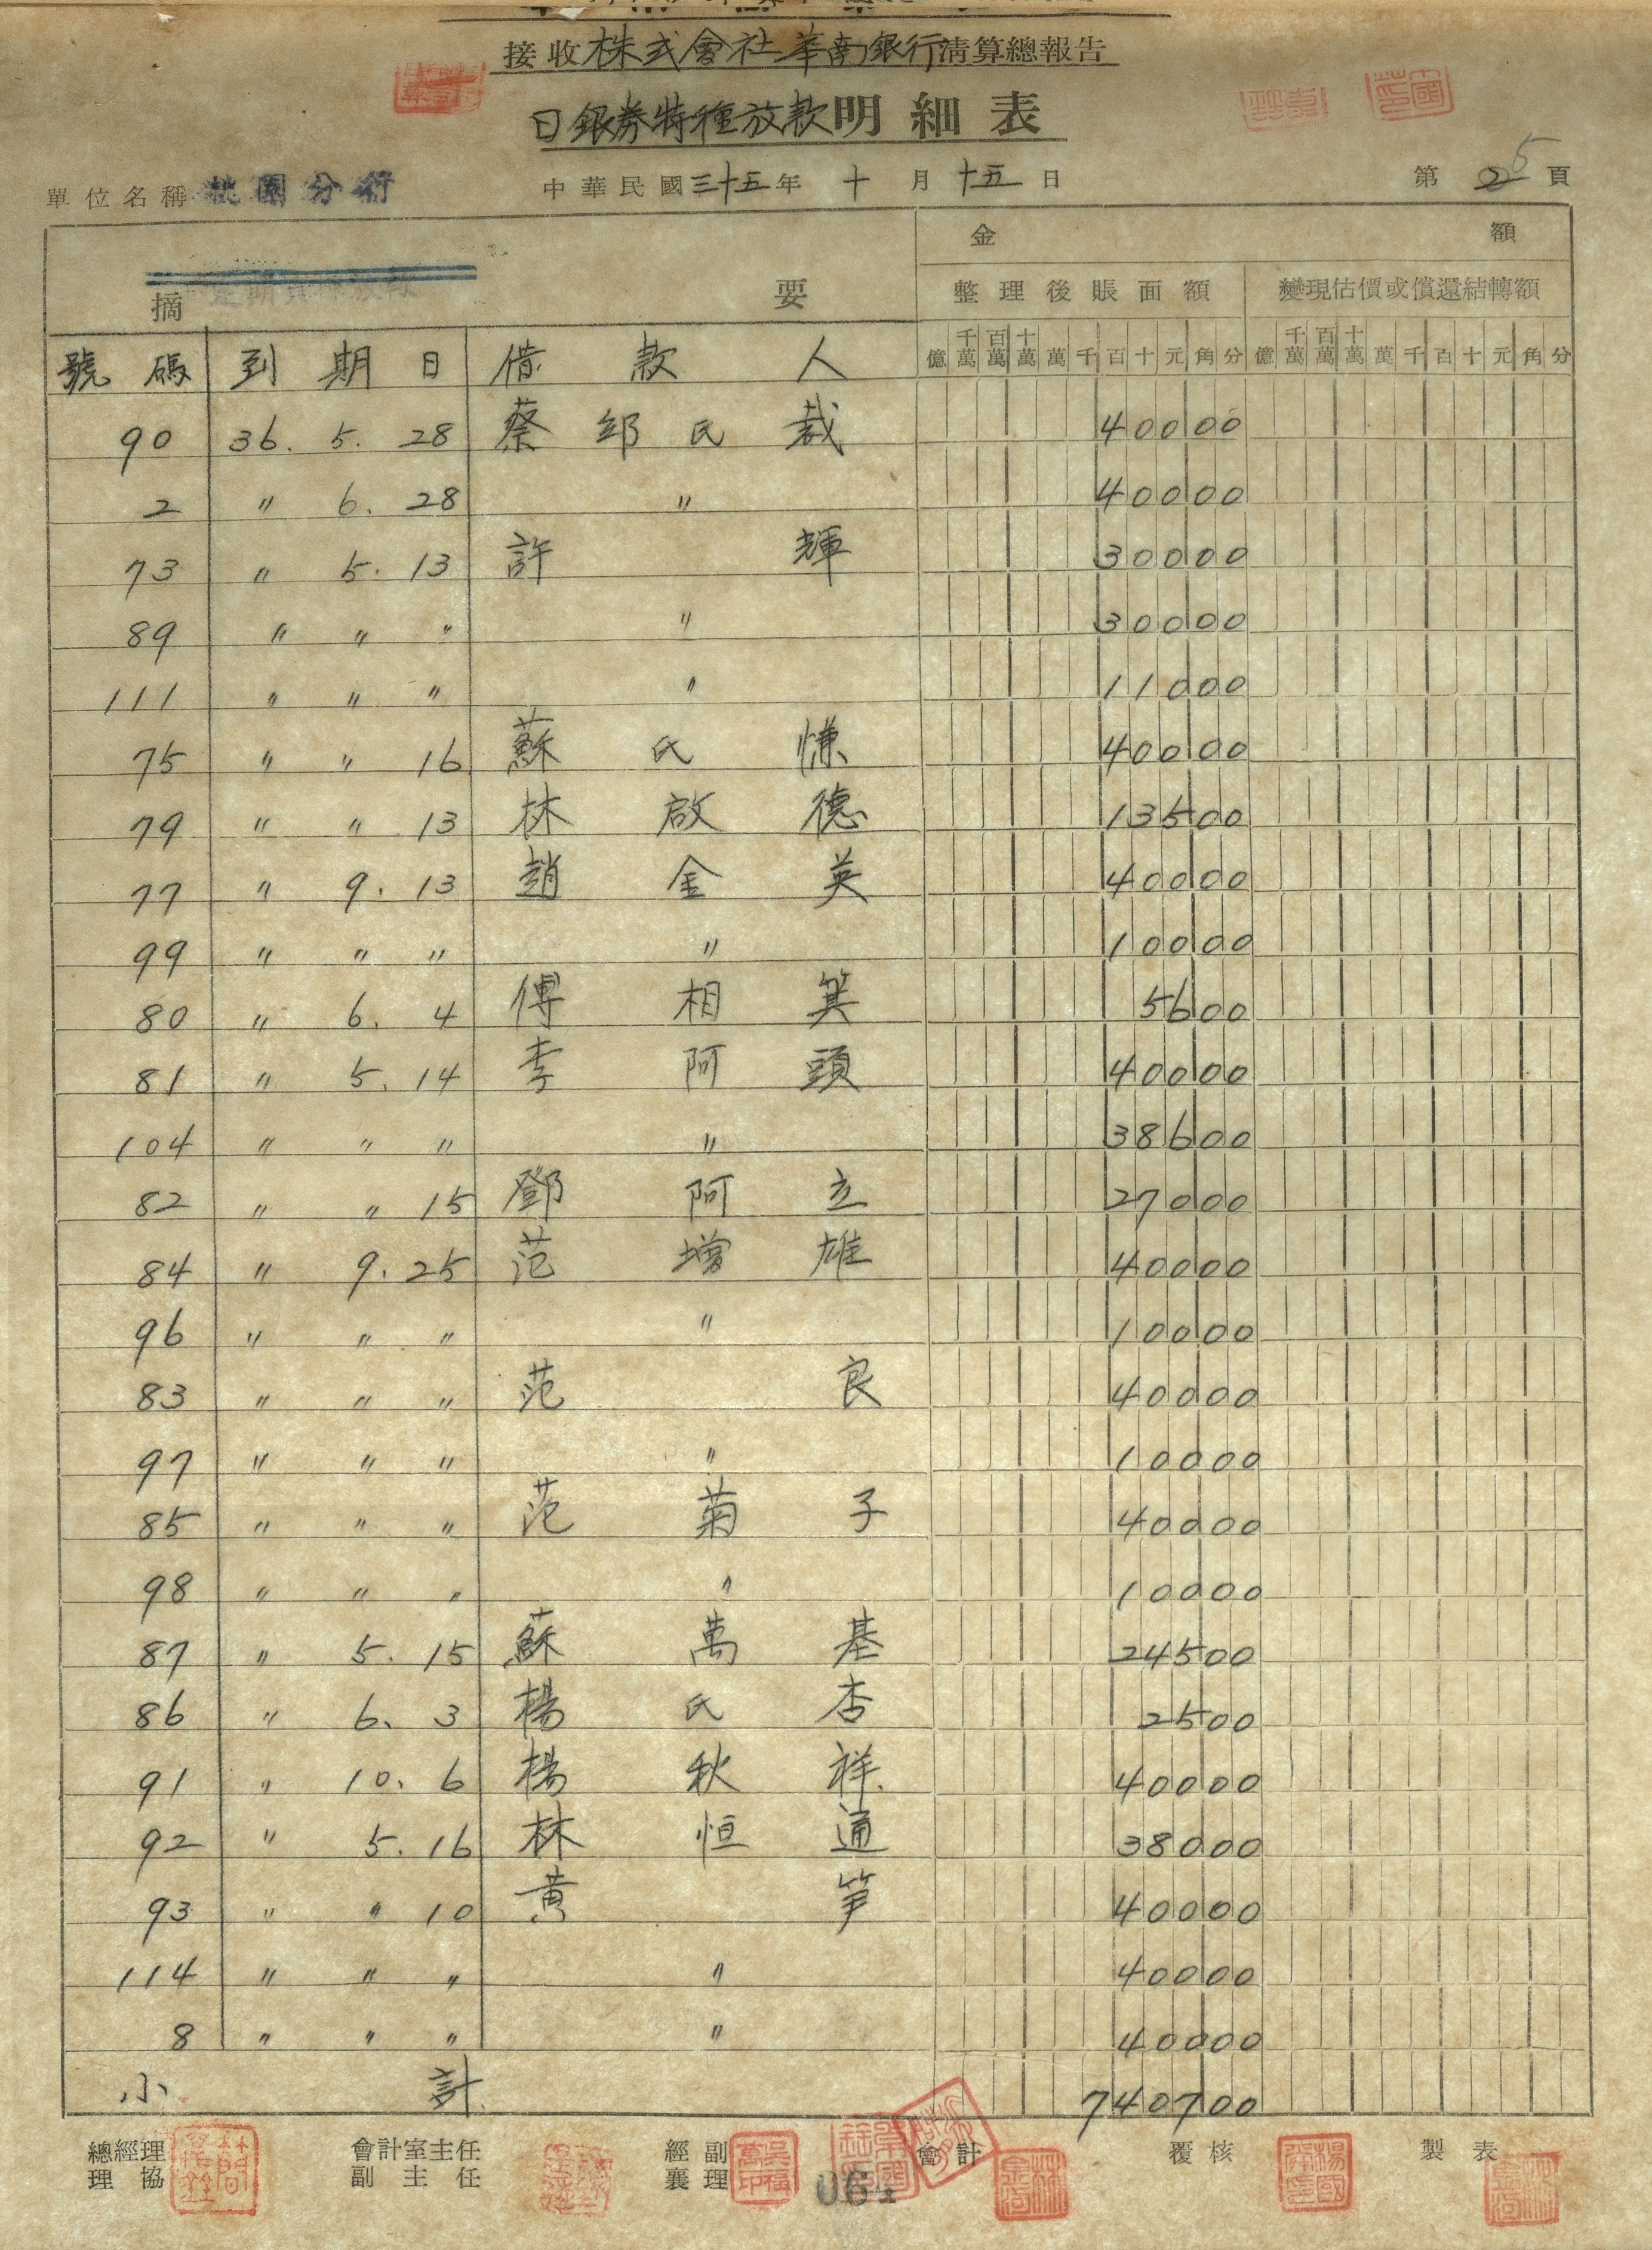 接收株式會社華南銀行清算總報告
日銀券特種放款明細表
單位名稱 桃園分行 中華民國三十五年 十 月 十五 日 第 5 頁
金 額
摘 要 整理後賬面額 變現估價或償還結轉額
億 千萬 百萬 十萬 萬 千 百 十 元 角 分 億 千萬 百萬 十萬 萬 千 百 十 元 角 分
號碼 到期日 借款人
90 36. 5. 28 蔡邱氏裁 40000
2 〃 6. 28 〃 40000
73 〃 5. 13 許輝 30000
89 〃 〃 〃 〃 30000
111 〃 〃 〃 〃 11000
75 〃 〃 16 蘇氏慊 40000
79 〃 〃 13 林啟德 13500
77 〃 9. 13 趙金英 40000
99 〃 〃 〃 〃 10000
80 〃 6. 4 傅相箕 5600
81 〃 5. 14 李阿頭 40000
104 〃 〃 〃 〃 38600
82 〃 〃 15 鄧阿立 27000
84 〃 9. 25 范增雄 40000
96 〃 〃 〃 〃 10000
83 〃 〃 〃 范良 40000
97 〃 〃 〃 〃 10000
85 〃 〃 〃 范菊子 40000
98 〃 〃 〃 〃 10000
87 〃 5. 15 蘇萬基 24500
86 〃 6. 3 楊氏杏 2500
91 〃 10. 6 楊秋祥 40000
92 〃 5. 16 林恒通 38000
93 〃 〃 10 黃笋 40000
114 〃 〃 〃 〃 40000
8 〃 〃 〃 〃 40000
小計 740700
總經理 會計室主任 經副 會計 覆核 製表
理協 副主任 襄理
064